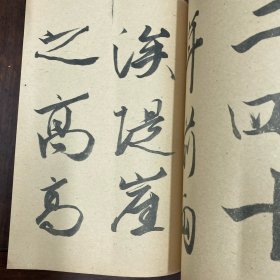 二四十
涘堤崖
之高高